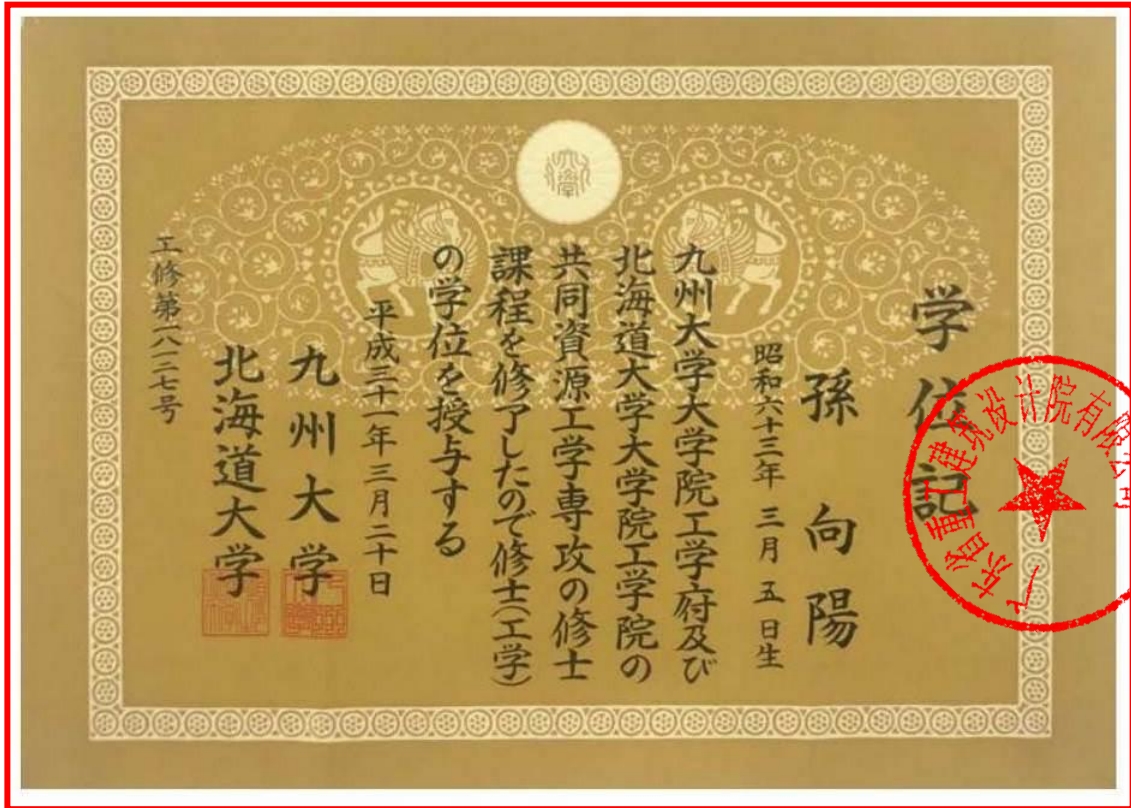 学位記
孫向陽
昭和六十三年三月五日生
九州大学大学院工学府及び
北海道大学大学院工学院の
共同資源工学専攻の修士
課程を修了したので修士(工学)
の学位を授与する
平成三十一年三月二十日
九州大学
北海道大学
工修第一八一二七号
广东省重工建筑设计院有限公司